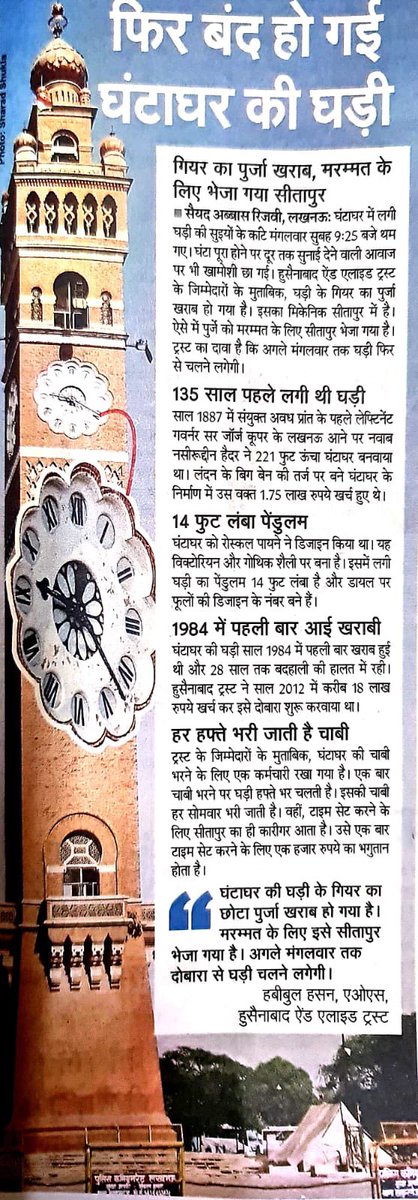 Photo: Sharad Shukla
फिर बंद हो गई
घंटाघर की घड़ी
गियर का पुर्जा खराब, मरम्मत के
लिए भेजा गया सीतापुर
■ सैयद अब्बास रिजवी, लखनऊ: घंटाघर में लगी
घड़ी की सुइयों के कांटे मंगलवार सुबह 9:25 बजे थम
गए। घंटा पूरा होने पर दूर तक सुनाई देने वाली आवाज
पर भी खामोशी छा गई। हुसैनाबाद ऐंड एलाइड ट्रस्ट
के जिम्मेदारों के मुताबिक, घड़ी के गियर का पुर्जा
खराब हो गया है। इसका मिकेनिक सीतापुर में है।
ऐसे में पुर्जे को मरम्मत के लिए सीतापुर भेजा गया है।
ट्रस्ट का दावा है कि अगले मंगलवार तक घड़ी फिर
से चलने लगेगी।
135 साल पहले लगी थी घड़ी
साल 1887 में संयुक्त अवध प्रांत के पहले लेफ्टिनेंट
गवर्नर सर जॉर्ज कूपर के लखनऊ आने पर नवाब
नसीरूद्दीन हैदर ने 221 फुट ऊंचा घंटाघर बनवाया
था। लंदन के बिग बेन की तर्ज पर बने घंटाघर के
निर्माण में उस वक्त 1.75 लाख रुपये खर्च हुए थे।
14 फुट लंबा पेंडुलम
घंटाघर को रोस्कल पायने ने डिजाइन किया था। यह
विक्टोरियन और गोथिक शैली पर बना है। इसमें लगी
घड़ी का पेंडुलम 14 फुट लंबा है और डायल पर
फूलों की डिजाइन के नंबर बने हैं।
1984 में पहली बार आई खराबी
घंटाघर की घड़ी साल 1984 में पहली बार खराब हुई
थी और 28 साल तक बदहाली की हालत में रही।
हुसैनाबाद ट्रस्ट ने साल 2012 में करीब 18 लाख
रुपये खर्च कर इसे दोबारा शुरू करवाया था।
हर हफ्ते भरी जाती है चाबी
ट्रस्ट के जिम्मेदारों के मुताबिक, घंटाघर की चाबी
भरने के लिए एक कर्मचारी रखा गया है। एक बार
चाबी भरने पर घड़ी हफ्ते भर चलती है। इसकी चाबी
हर सोमवार भरी जाती है। वहीं, टाइम सेट करने के
लिए सीतापुर का ही कारीगर आता है। उसे एक बार
टाइम सेट करने के लिए एक हजार रुपये का भुगतान
होता है।
घंटाघर की घड़ी के गियर का
छोटा पुर्जा खराब हो गया है।
मरम्मत के लिए इसे सीतापुर
भेजा गया है। अगले मंगलवार तक
दोबारा से घड़ी चलने लगेगी।
हबीबुल हसन, एओएस,
हुसैनाबाद ऐंड एलाइड ट्रस्ट
पुलिस कमिश्नरेट लखनऊ